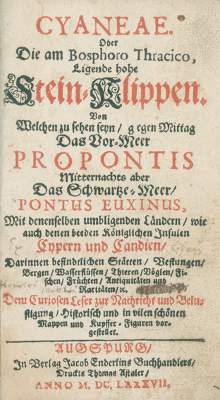 CYANEAE.
Oder
Die am Bosphoro Thracico,
Ligende hohe
Stein-Klippen.
Von
Welchen zu sehen seyn / gegen Mittag
Das Vor-Meer
PROPONTIS
Mitternachts aber
Das Schwartze-Meer /
PONTUS EUXINUS,
Mit denenselben umbligenden Ländern / wie
auch denen beeden Königlichen Insulen
Cypern und Candien /
Darinnen befindlichen Stätten / Vestungen /
Bergen / Wasserflüssen / Thieren / Vöglen / Fi-
schen / Früchten / Antiquitäten und
Raritäten / &c.
Dem Curiosen Leser zur Nachricht und Belu-
stigung / Historisch und in vilen schönen
Mappen und Kupffer-Figuren vor-
gestellet.
AUGSPURG /
In Verlag Jacob Enderlins Buchhandlers /
Druckts Thomas Astaler /
ANNO M. DC. LXXXVII.